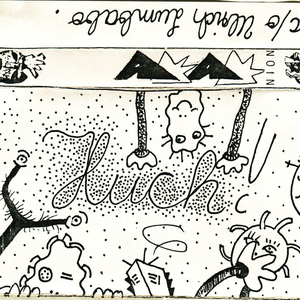 c/o Ulrich Lumbabo.
NOIN
Huch